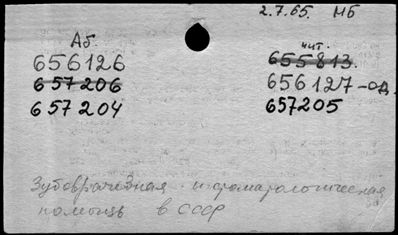 2.7.65. МБ
Аб. чит.
656126 655813.
657206 656127-од.
657204 657205
Зубоврачебная и стоматологическая
помощь в СССР